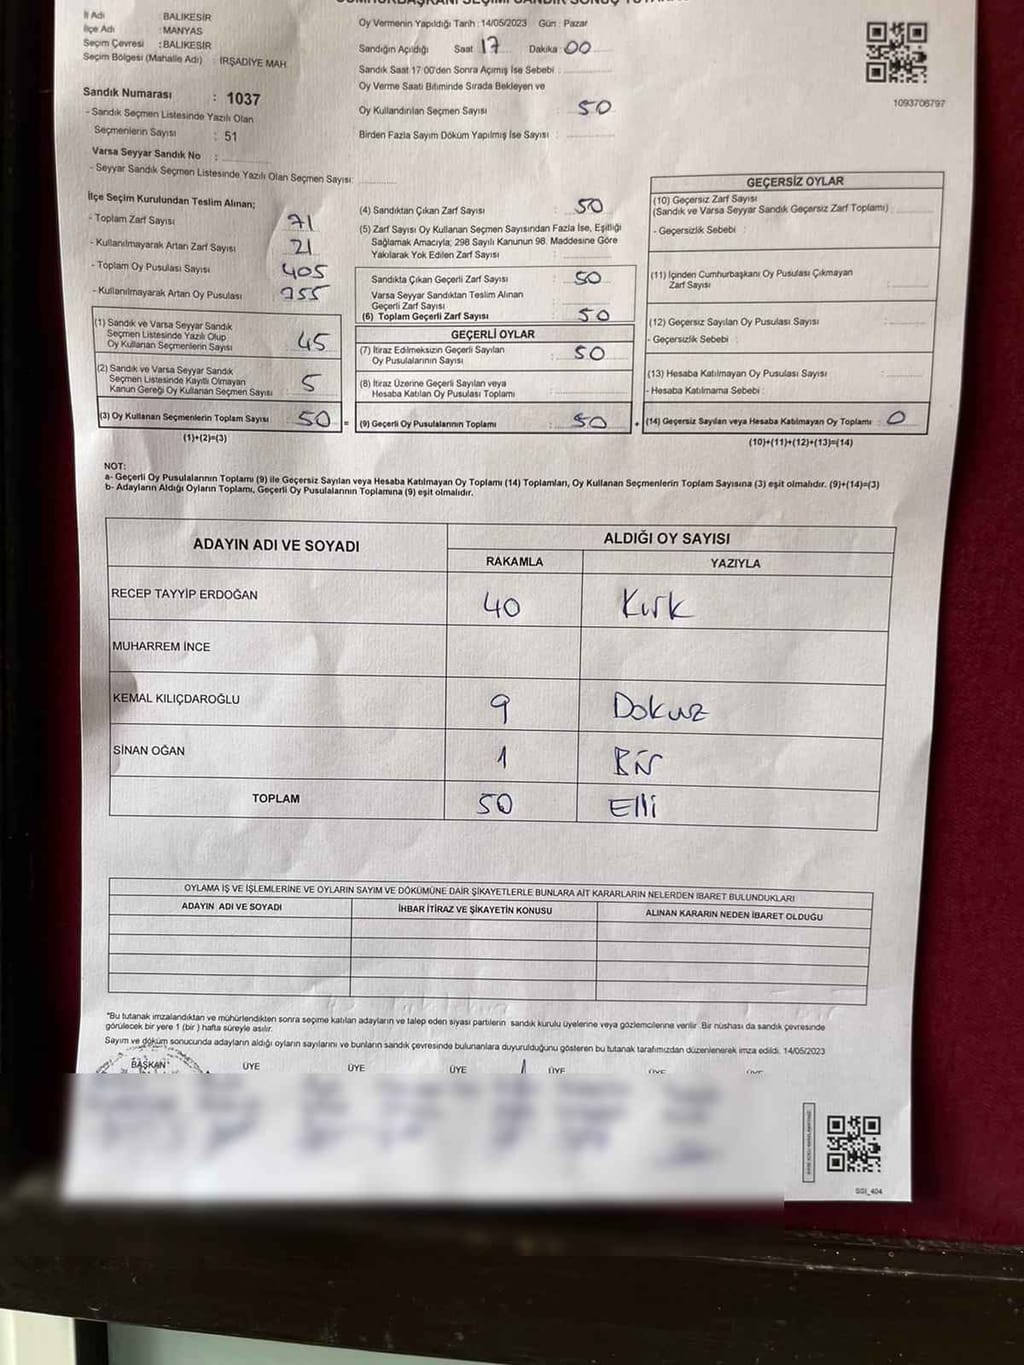 İli Adı BALIKESİR
İlçe Adı : MANYAS
Seçim Çevresi : BALIKESİR
Seçim Bölgesi (Mahalle Adı) : İRŞADİYE MAH.
Sandık Numarası : 1037
- Sandık Seçmen Listesinde Yazılı Olan
Seçmenlerin Sayısı : 51
Varsa Seyyar Sandık No :
- Seyyar Sandık Seçmen Listesinde Yazılı Olan Seçmen Sayısı:
Oy Vermenin Yapıldığı Tarih : 14/05/2023 Gün : Pazar
Sandığın Açıldığı Saat 17 Dakika : 00
Sandık Saat 17:00'den Sonra Açımış İse Sebebi :
Oy Verme Saati Bitiminde Sırada Bekleyen ve
Oy Kullandırılan Seçmen Sayısı : 50
Birden Fazla Sayım Döküm Yapılmış İse Sayısı :
1093706797
İlçe Seçim Kurulundan Teslim Alınan;
- Toplam Zarf Sayısı 71
- Kullanılmayarak Artan Zarf Sayısı 21
- Toplam Oy Pusulası Sayısı 405
- Kullanılmayarak Artan Oy Pusulası 355
(1) Sandık ve Varsa Seyyar Sandık
Seçmen Listesinde Yazılı Olup
Oy Kullanan Seçmenlerin Sayısı 45
(2) Sandık ve Varsa Seyyar Sandık
Seçmen Listesinde Kayıtlı Olmayan
Kanun Gereği Oy Kullanan Seçmen Sayısı 5
(3) Oy Kullanan Seçmenlerin Toplam Sayısı 50 =
(1)+(2)=(3)
(4) Sandıktan Çıkan Zarf Sayısı : 50
(5) Zarf Sayısı Oy Kullanan Seçmen Sayısından Fazla İse, Eşitliği
Sağlamak Amacıyla; 298 Sayılı Kanunun 98. Maddesine Göre
Yakılarak Yok Edilen Zarf Sayısı :
Sandıkta Çıkan Geçerli Zarf Sayısı : 50
Varsa Seyyar Sandıktan Teslim Alınan
Geçerli Zarf Sayısı :
(6) Toplam Geçerli Zarf Sayısı : 50
GEÇERLİ OYLAR
(7) İtiraz Edilmeksizin Geçerli Sayılan
Oy Pusulalarının Sayısı : 50
(8) İtiraz Üzerine Geçerli Sayılan veya
Hesaba Katılan Oy Pusulası Toplamı :
(9) Geçerli Oy Pusulalarının Toplamı : 50 +
GEÇERSİZ OYLAR
(10) Geçersiz Zarf Sayısı
(Sandık ve Varsa Seyyar Sandık Geçersiz Zarf Toplamı) :
- Geçersizlik Sebebi :
(11) İçinden Cumhurbaşkanı Oy Pusulası Çıkmayan
Zarf Sayısı :
(12) Geçersiz Sayılan Oy Pusulası Sayısı :
- Geçersizlik Sebebi :
(13) Hesaba Katılmayan Oy Pusulası Sayısı :
- Hesaba Katılmama Sebebi :
(14) Geçersiz Sayılan veya Hesaba Katılmayan Oy Toplamı : 0
(10)+(11)+(12)+(13)=(14)
NOT:
a- Geçerli Oy Pusulalarının Toplamı (9) ile Geçersiz Sayılan veya Hesaba Katılmayan Oy Toplamı (14) Toplamları, Oy Kullanan Seçmenlerin Toplam Sayısına (3) eşit olmalıdır. (9)+(14)=(3)
b- Adayların Aldığı Oyların Toplamı, Geçerli Oy Pusulalarının Toplamına (9) eşit olmalıdır.
ADAYIN ADI VE SOYADI
ALDIĞI OY SAYISI
RAKAMLA YAZIYLA
RECEP TAYYİP ERDOĞAN 40 Kırk
MUHARREM İNCE
KEMAL KILIÇDAROĞLU 9 Dokuz
SİNAN OĞAN 1 Bir
TOPLAM 50 Elli
OYLAMA İŞ VE İŞLEMLERİNE VE OYLARIN SAYIM VE DÖKÜMÜNE DAİR ŞİKAYETLERLE BUNLARA AİT KARARLARIN NELERDEN İBARET BULUNDUKLARI
ADAYIN ADI VE SOYADI İHBAR İTİRAZ VE ŞİKAYETİN KONUSU ALINAN KARARIN NEDEN İBARET OLDUĞU
*Bu tutanak imzalandıktan ve mühürlendikten sonra seçime katılan adayların ve talep eden siyasi partilerin sandık kurulu üyelerine veya gözlemcilerine verilir. Bir nüshası da sandık çevresinde
görülecek bir yere 1 (bir ) hafta süreyle asılır.
Sayım ve döküm sonucunda adayların aldığı oyların sayılarını ve bunların sandık çevresinde bulunanlara duyurulduğunu gösteren bu tutanak tarafımızdan düzenlenerek imza edildi. 14/05/2023
BAŞKAN ÜYE ÜYE ÜYE ÜYE ÜYE ÜYE
SSI_404